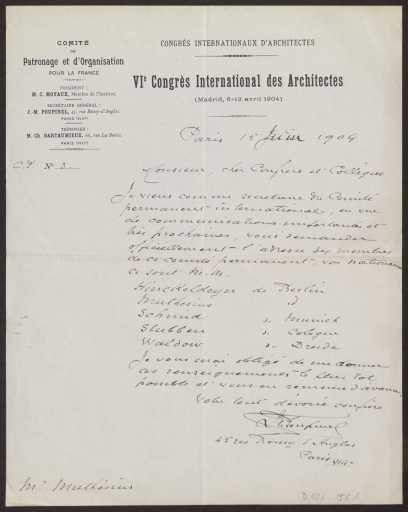 COMITÉ
DE
Patronage et d'Organisation
POUR LA FRANCE
PRÉSIDENT :
M. C. MOYAUX, Membre de l'Institut.
SECRÉTAIRE GÉNÉRAL :
J.-M. POUPINEL, 45, rue Boissy-d'Anglas.
PARIS
TRÉSORIER :
M. Ch. BARTAUMIEUX, 66, rue La Boëtie.
PARIS
CONGRÈS INTERNATIONAUX D'ARCHITECTES
VIe Congrès International des Architectes
(Madrid, 6-13 avril 1904)
Paris 15 février 1904
N° 3.
Monsieur, cher Confrère et Collègue
Je viens comme secrétaire du Comité
permanent international, en vue
de communications importantes et
très prochaines, vous demander
officieusement l'adresse des membres
de ce comité permanent, vos nationaux
ce sont M.M.
Hinckeldeyn de Berlin
Muthesius d°
Schmid d. Munich
Stubben d. Cologne
Waldow d. Dresde
Je vous serai obligé de me donner
ces renseignements le plus tôt
possible et vous en remercie d'avance
Votre tout dévoué confrère
Poupinel
45 rue Boissy d'Anglas
Paris
Mr Muthésius